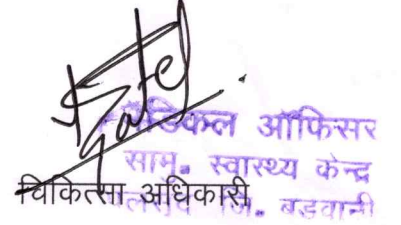 मेडिकल ऑफिसर
साम. स्वास्थ्य केन्द्र
चिकित्सा अधिकारी
जि. बडवानी